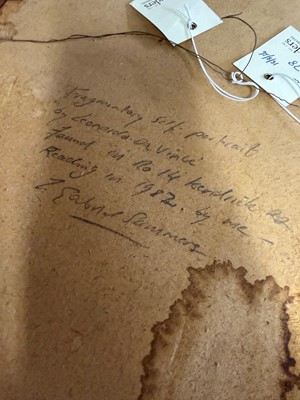 ders
78
Fragmentary self-portrait
by Leonardo da Vinci
found in No 14 Kendrick
Reading in 1982. by me —
Summers